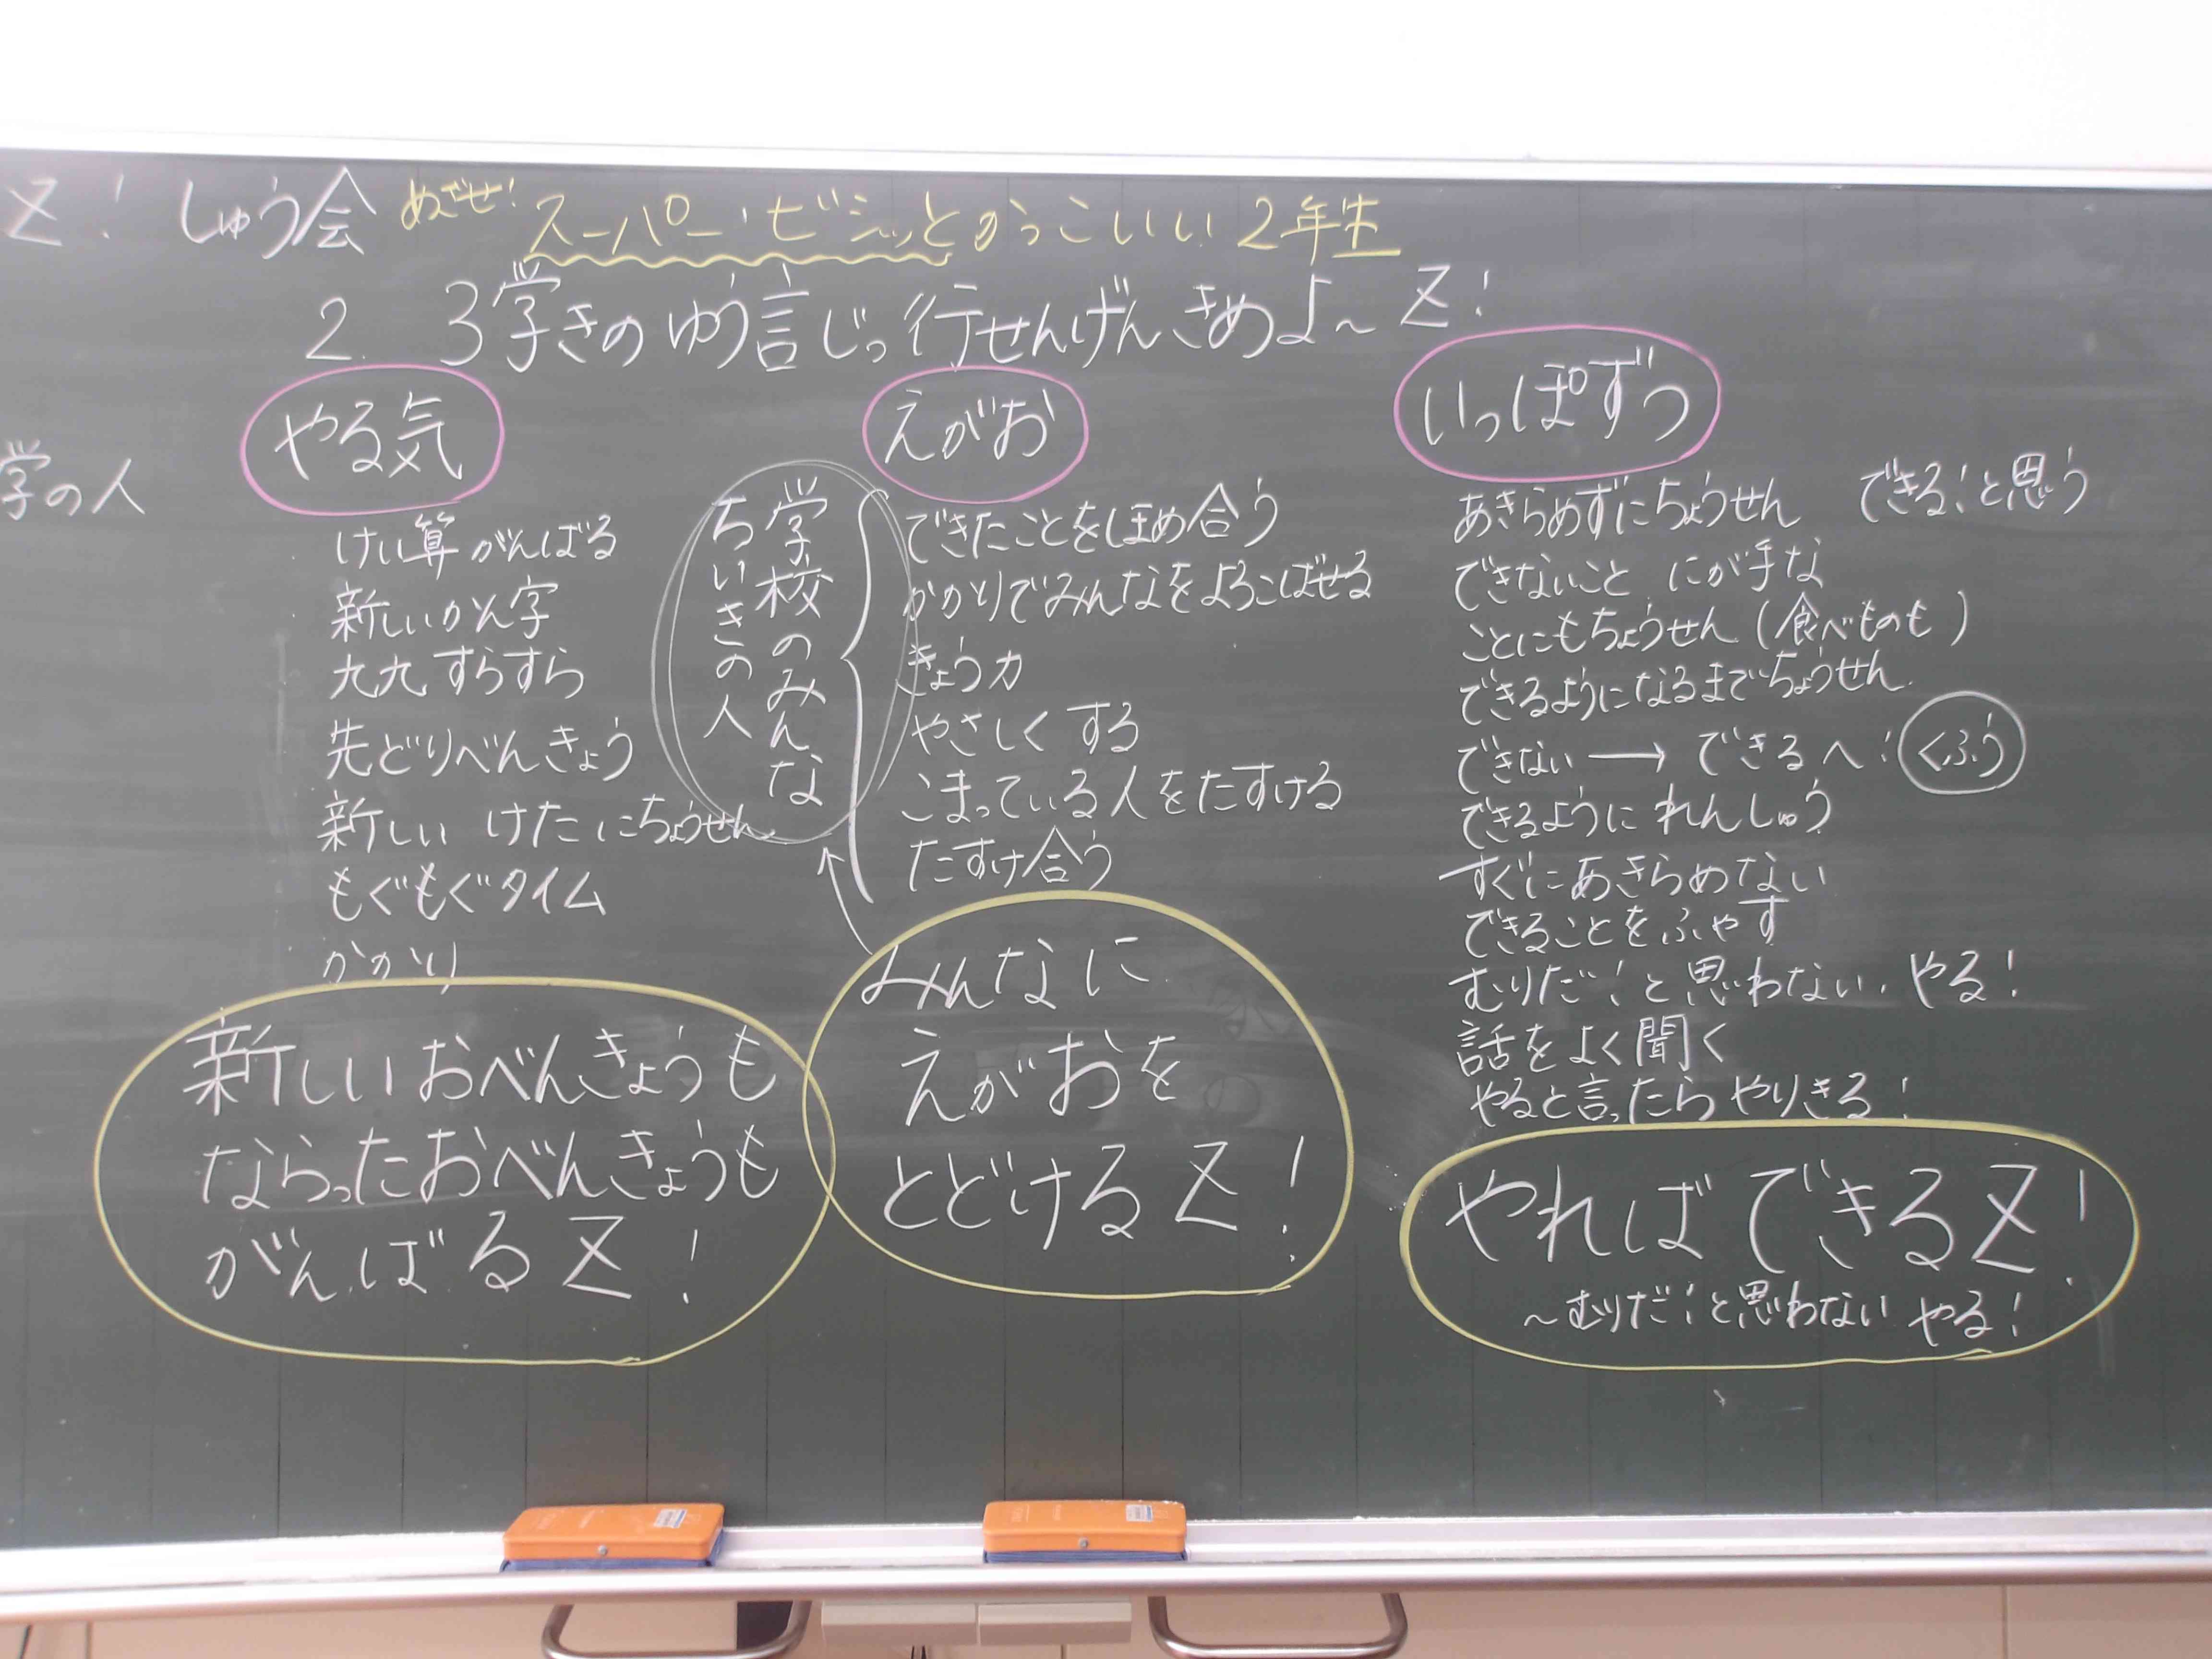 Z! しゅう会 めざせ! スーパー・ビシッとかっこいい2年生
2. 3学きのゆう言じっ行せんげんきめよ〜Z!
学の人
やる気
けい算がんばる
新しいかん字
九九すらすら
先どりべんきょう
新しい けたにちょうせん
もぐもぐタイム
かかり
新しいおべんきょうも
ならったおべんきょうも
がんばるZ!
えがお
できたことをほめ合う
かかりでみんなをよろこばせる
きょう力
やさしくする
こまっている人をたすける
たすけ合う
学校のみんな
ちいきの人
みんなに
えがおを
とどけるZ!
いっぽずつ
あきらめずにちょうせん できる!と思う
できないこと にが手な
ことにもちょうせん(食べものも)
できるようになるまでちょうせん
できない→できるへ! くふう
できるようにれんしゅう
すぐにあきらめない
できることをふやす
むりだ!と思わない.やる!
話をよく聞く
やると言ったらやりきる!
やればできるZ!
〜むりだ!と思わない やる!